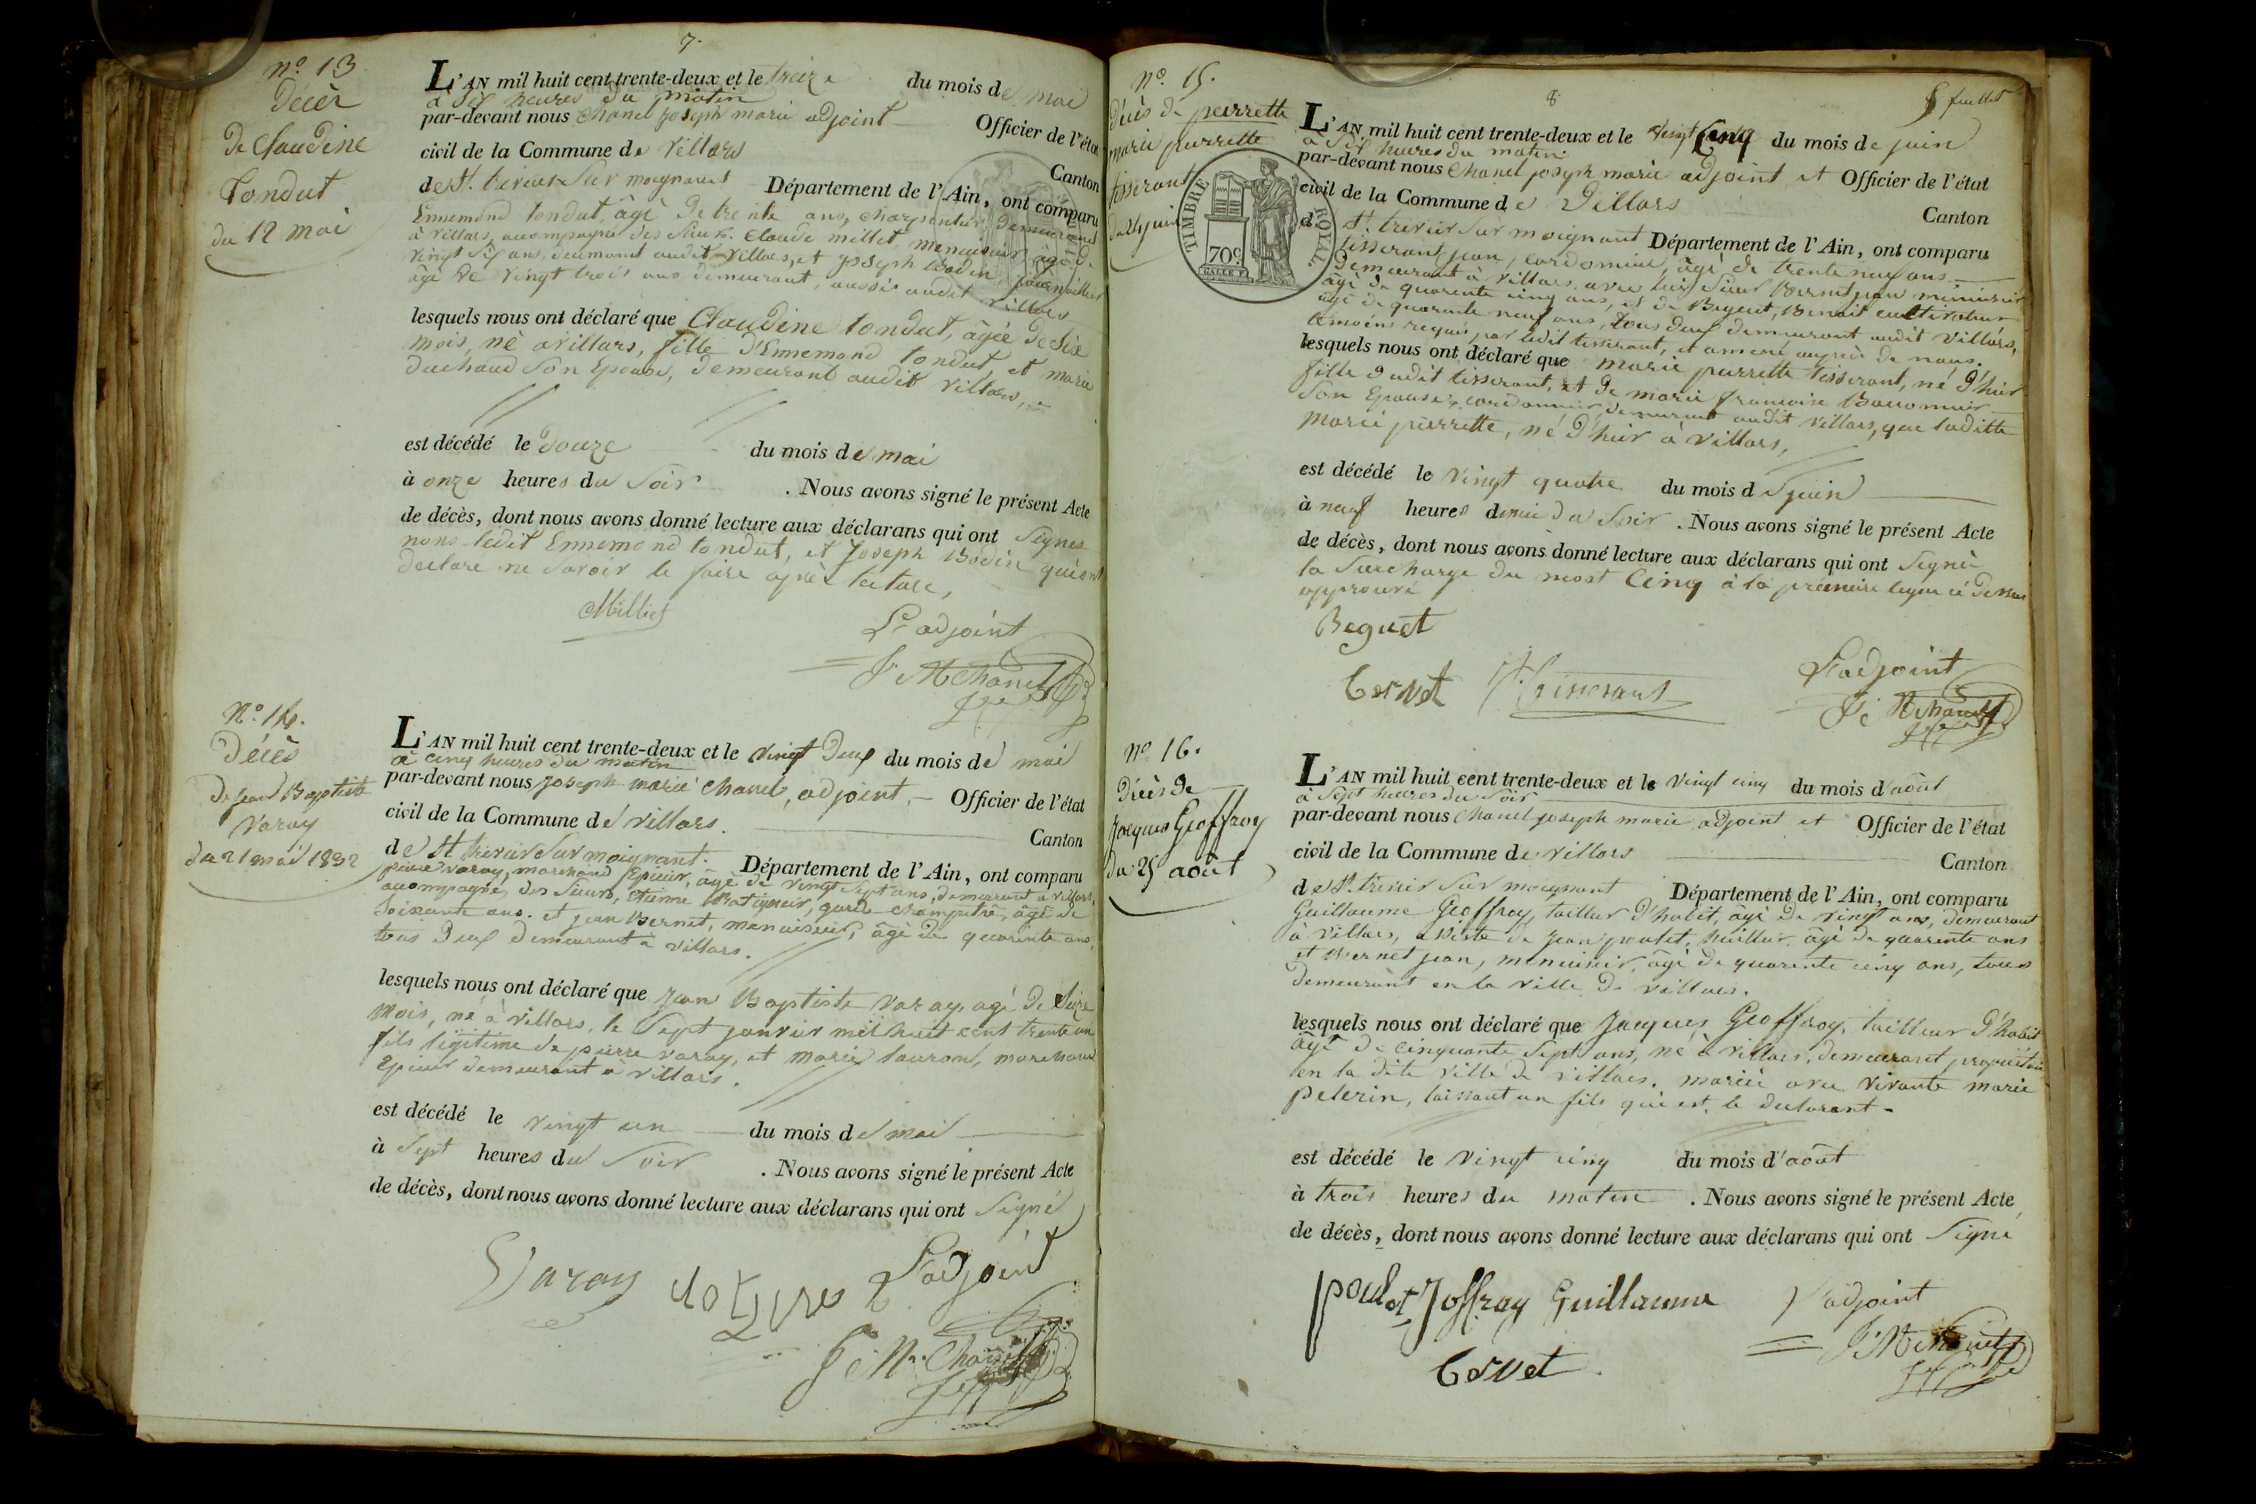 7.
nº. 13
Décès
De Claudine
Tondut
du 12 mai
L'AN mil huit cent trente-deux et le treize du mois de mai
à six heures du matin
par-devant nous Chanel joseph marie adjoint Officier de l'état
civil de la Commune de Villars
Canton
de St. trivier Sur moignant Département de l'Ain, ont comparu
Ennemond tondut, âgé de trente ans, charpentier, demeurant
à Villars, accompagné des sieurs Claude millet, menuisier âgé de
vingt six ans, demeurant audit Villars, et joseph bodin
âgé de vingt trois ans demeurant, aussi audit Villars
lesquels nous ont déclaré que Claudine tondut, âgée de six
mois, né a villars, fille d'Ennemond tondut, et marie
duchaud Son Epouse, demeurant audit Villars,
est décédé le Douze du mois de mai
à onze heures du Soir . Nous avons signé le présent Acte
de décès, dont nous avons donné lecture aux déclarans qui ont Signés
nous ledit Ennemond tondut, et Joseph Bodin qui ont
declaré ne Savoir le faire après lecture,
Millet
L'adjoint
J. M Chanel
Nº. 14.
Décès
De jean Baptiste
Varay
du 21 mai 1832
L'AN mil huit cent trente-deux et le vingt Deux du mois de mai
à cinq heures du matin
par-devant nous joseph marie Chanel, adjoint, Officier de l'état
civil de la Commune de Villars.
Canton
de St trivier Sur moignant. Département de l'Ain, ont comparu
pierre Varay, marchand Epicier, âgé de vingt Sept ans, demeurant a villars,
accompagné des Sieurs, Etienne garde champetre, âgé de
Soixante ans. et jean Bernet, menuisier, âgé de quarante ans,
tous Deux demeurant à Villars.
lesquels nous ont déclaré que Jean Baptiste Varay, agé de Seize
Mois, né à Villars, le Sept janvier mil huit cent trente un
fils légitime de pierre varay, et marie lauron, marchand
Epicier demeurant à villars.
est décédé le vingt un du mois de mai
à Sept heures du Soir . Nous avons signé le présent Acte
de décès, dont nous avons donné lecture aux déclarans qui ont Signé
Varay
L'adjoint
J. M. Chanel
8
8 feuillet
Nº. 15.
Décès de pierrette
marie pierrette
tisserant
du 24 juin
TIMBRE ROYAL
70 c.
L'AN mil huit cent trente-deux et le vingt Cinq du mois de juin
à Six heures du matin
par-devant nous Chanel joseph marie adjoint et Officier de l'état
civil de la Commune de Villars
Canton
de St. trivier Sur moignant Département de l'Ain, ont comparu
tisserant jean, cordonnier, âgé de trente neuf ans
Demeurant à Villars, avec lui Sieur Bernet jean menuisier
âgé de quarente cinq ans, et de Beguet, Benoit cultivateur
âgé de quarante neuf ans, tous deux demeurant audit Villars,
temoins requis par ledit tisserant, et amené auprès de nous.
lesquels nous ont déclaré que marie pierrette tisserant, né d'hier
fille dudit tisserant, et de marie francoise
Son Epouse, cordonnier demeurant audit Villars, que laditte
Marie pierrette, né d'hier à Villars,
est décédé le vingt quatre du mois de juin
à neuf heures demie du Soir . Nous avons signé le présent Acte
de décès, dont nous avons donné lecture aux déclarans qui ont Signé
la Surcharge du mot Cinq à la premiere ligne ci dessus
approuvé
Beguet
L'adjoint
Bernet
Tisserant
J. M Chanel
Nº 16.
Décès de
Jacques Geoffroy
du 25 août
L'AN mil huit cent trente-deux et le vingt cinq du mois d'août
à Sept heures du Soir
par-devant nous Chanel joseph marie adjoint et Officier de l'état
civil de la Commune de Villars
Canton
de St. trivier Sur moignant Département de l'Ain, ont comparu
Guillaume Geoffroy, tailleur d'habit, âgé de vingt ans, demeurant
à Villars, assisté de jean poulet, âgé de quarente ans
et Bernet jean, menuisier, âgé de quarente cinq ans, tous
Demeurant en la Ville de Villars.
lesquels nous ont déclaré que Jacques Geoffroy, tailleur d'habit
âgé de cinquante Sept ans, né à Villars, demeurant propriétaire
en la dite ville de villars. marié avec vivante marie
pelerin, laissant un fils qui est le declarant.
est décédé le vingt cinq du mois d'août
à trois heures du matin . Nous avons signé le présent Acte
de décès, dont nous avons donné lecture aux déclarans qui ont Signé
poulet Joffray Guillaume
L'adjoint
Bernet
J. M Chanel